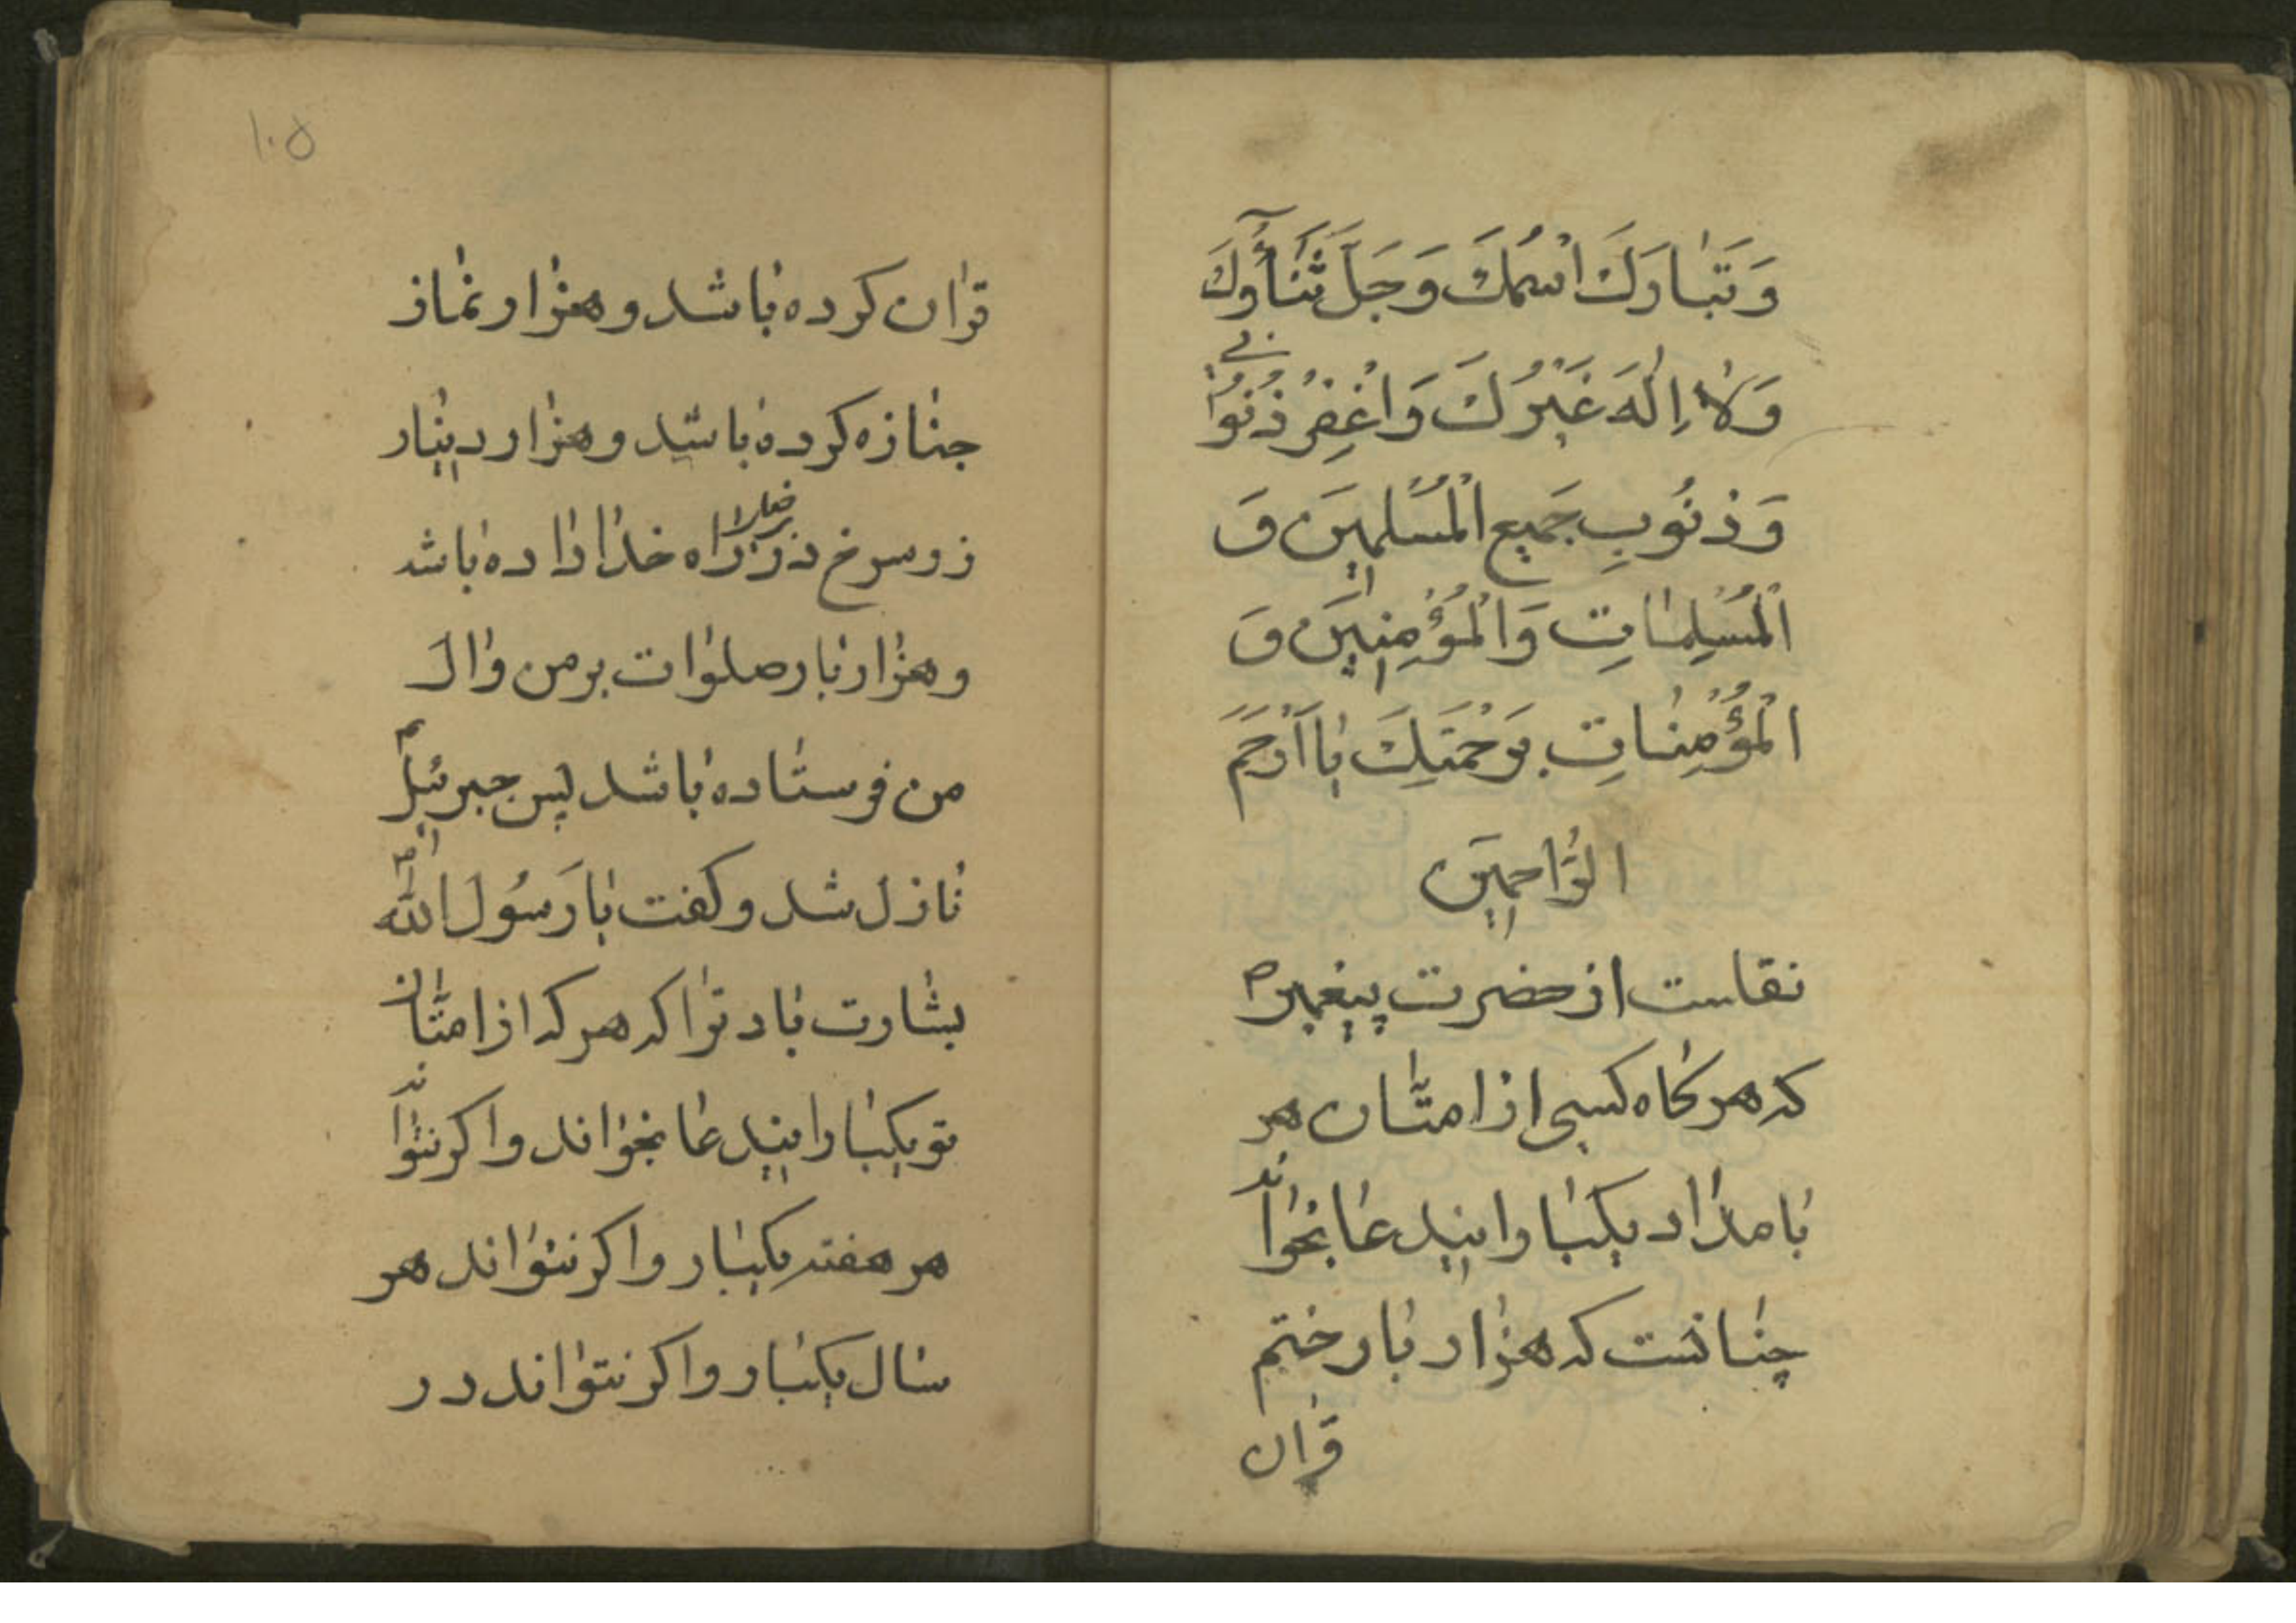 وَتَبَارَكَ اسْمُكَ وَجَلَّ ثَنَآؤُكَ
وَلَا اِلٰهَ غَيْرُكَ وَاغْفِرْ ذُنُوبِي
وَذُنُوبِ جَمِيعِ الْمُسْلِمِينَ وَ
الْمُسْلِمَاتِ وَالْمُؤْمِنِينَ وَ
الْمُؤْمِنَاتِ بِرَحْمَتِكَ يَا اَرْحَمَ
الرَّاحِمِينَ
نقلست از حضرت پیغمبر ص
که هر کاه کسی از امتان هر
بامداد یکبار ایندعا بخواند
چنانست که هزار بار ختم
قران
۱۰۵
قران کرده باشد و هزار نماز
جنازه کرده باشد و هزار دینار
زر سرخ در راه خدا داده باشد
و هزار بار صلوات بر من و ال
من فرستاده باشد پس جبرئیل
نازل شد و کفت یا رَسُول الله
بشارت باد ترا که هر که از امتان
تو یکبار ایندعا بخواند و اکر نتواند
هر هفته یکبار و اکر نتواند هر
سال یکبار و اکر نتواند در